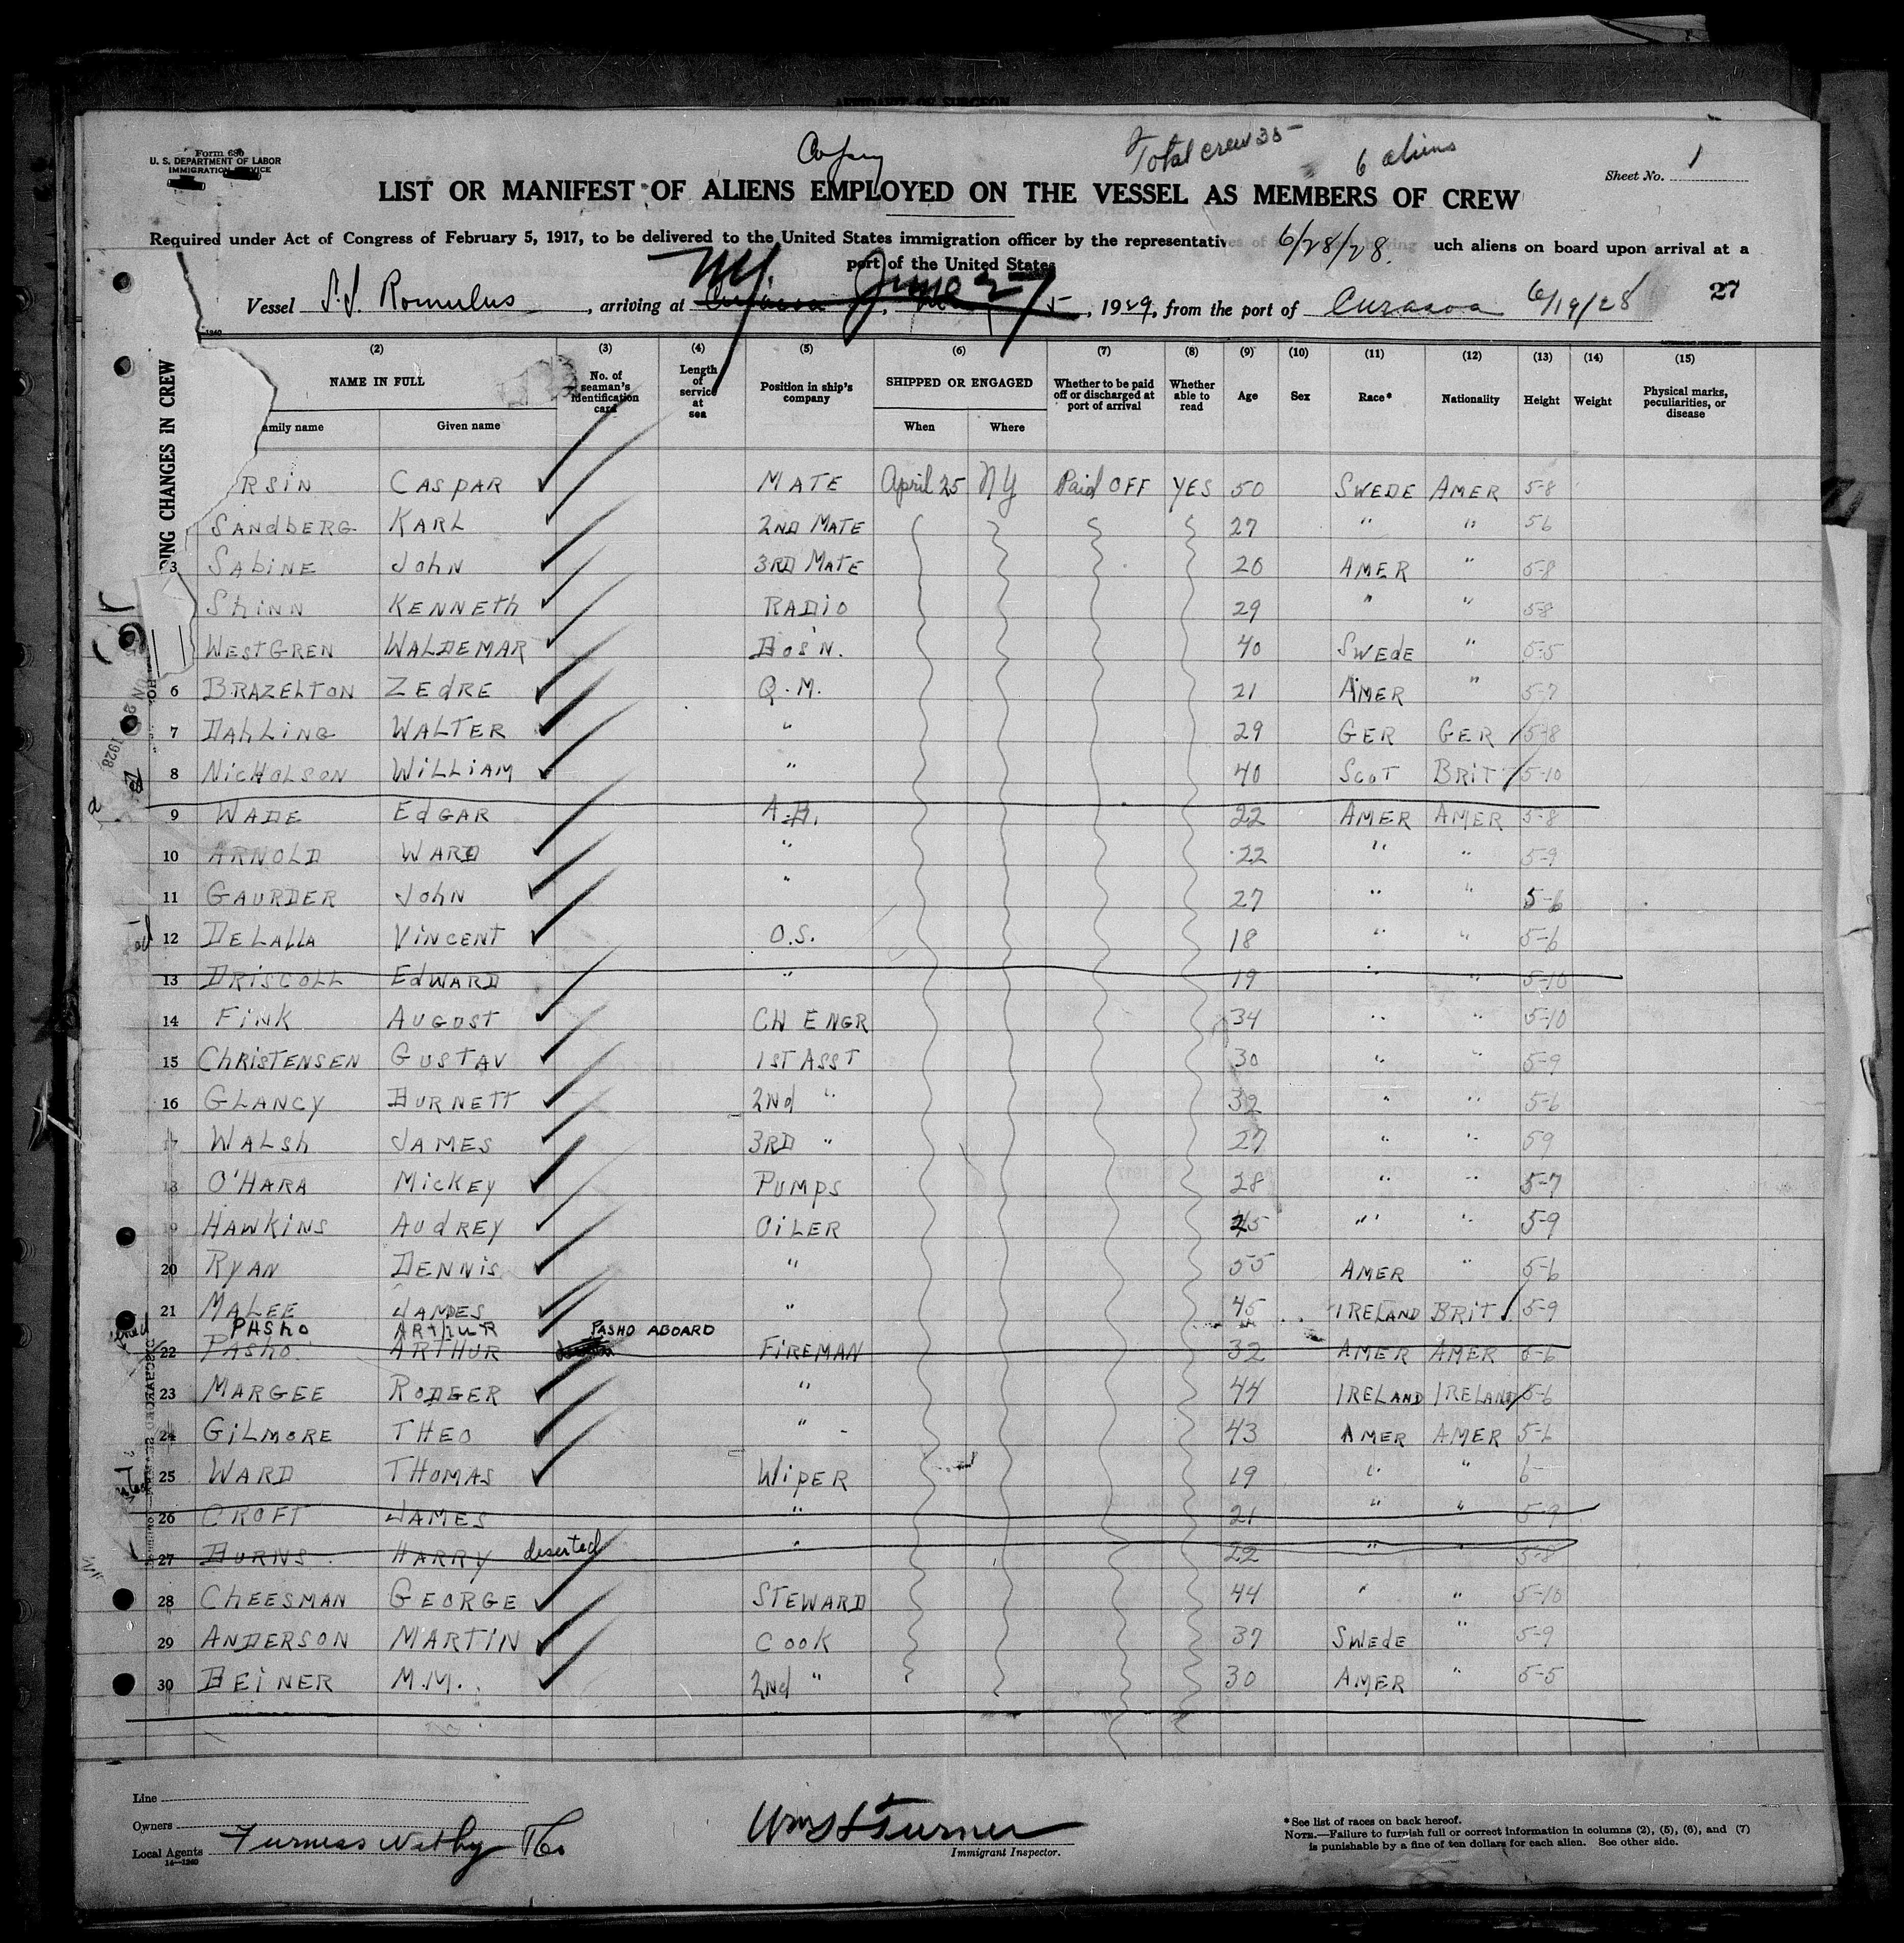 AFFIDAVIT OF SURGEON
Form 680
U. S. DEPARTMENT OF LABOR
IMMIGRATION SERVICE
Copy
Total crew 35
6 aliens
Sheet No. 1
LIST OR MANIFEST OF ALIENS EMPLOYED ON THE VESSEL AS MEMBERS OF CREW
Required under Act of Congress of February 5, 1917, to be delivered to the United States immigration officer by the representatives of 6/28/28. uch aliens on board upon arrival at a
port of the United States
Vessel S.S. Romulus, arriving at NY. June 27, 1929, from the port of Curasoa 6/19/28 27
(2) (3) (4) (5) (6) (7) (8) (9) (10) (11) (12) (13) (14) (15)
NAME IN FULL No. of seaman's identification card Length of service at sea Position in ship's company SHIPPED OR ENGAGED Whether to be paid off or discharged at port of arrival Whether able to read Age Sex Race* Nationality Height Weight Physical marks, peculiarities, or disease
amily name Given name When Where
DING CHANGES IN CREW
RSiN CASPAR MATE April 25 NY Paid OFF YES 50 SWEDE AMER 5-8
SANDbERG KARL 2ND MATE 27 " " 56
3 SAbINE JohN 3RD MATE 20 AMER " 5-8
ShiNN KENNETh RADiO 29 " " 58
WESTGREN WALDEMAR BOS'N. 40 SWEdE " 5-5
6 BRAZELTON ZEdRE Q.M. 21 AMER " 5-7
7 DAhLiNG WALTER " 29 GER GER 5-8
8 NiCHOLSON WiLLiAM " 40 SCOT BRIT 5-10
9 WADE EdGAR A.B. 22 AMER AMER 5-8
10 ARNOLD WARD " 22 " " 5-9
11 GAURDER JohN " 27 " " 5-6
12 DELALLA ViNCENT O.S. 18 " " 5-6
13 DRiSCOLL EdWARD " 19 " " 5-10
14 FiNK AUGUST CH ENGR 34 " " 5-10
15 ChRiSTENSEN GUSTAV 1ST ASST 30 " " 5-9
16 GLANCY BURNETT 2Nd " 32 " " 5-6
17 WALSh JAMES 3RD " 27 " " 59
18 O'HARA MiCKEY PUMPS 28 " " 5-7
19 HAWKiNS AUdREY OiLER 25 " " 5-9
20 RYAN DENNiS " 55 AMER " 5-6
21 MALEE JAMES " 45 IRELAND BRIT. 5-9
PAShO ARThUR PASHO ABOARD
22 PAShO ARTHUR FiREMAN 32 AMER AMER 5-6
23 MARGEE RODGER " 44 IRELAND IRELAND 5-6
24 GiLMORE THEO " 43 AMER AMER 5-6
25 WARD THOMAS WiPER 19 " " 6
26 CROFT JAMES " 21 " " 5-9
27 BURNS HARRY deserted " 22 " " 5-8
28 ChEESMAN GEORGE STEWARD 44 " " 5-10
29 ANDERSON MARTiN COOK 37 SWEdE " 5-9
30 BEiNER M.M. 2Nd " 30 AMER " 5-5
Line
Owners
Local Agents Furness Withy & Co
14—1240
Wm S Turner
Immigrant Inspector.
* See list of races on back hereof.
NOTE.—Failure to furnish full or correct information in columns (2), (5), (6), and (7)
is punishable by a fine of ten dollars for each alien. See other side.